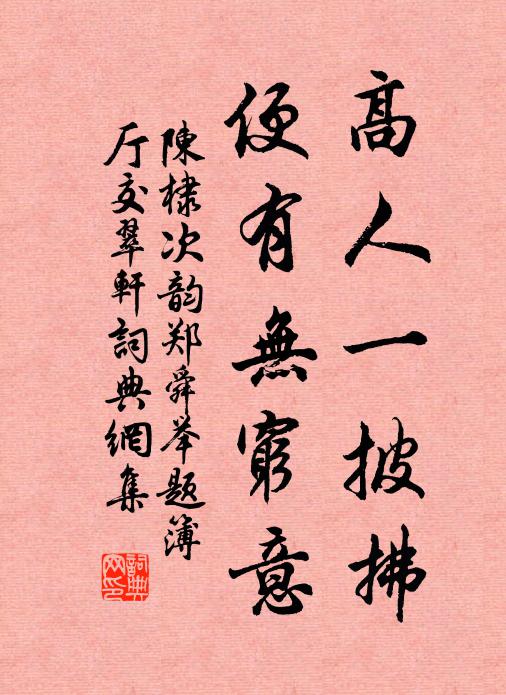 高人一披拂
便有無窮意
陳棣次韵郑舜举题簿
厅交翠軒詞典網集
詞典网印